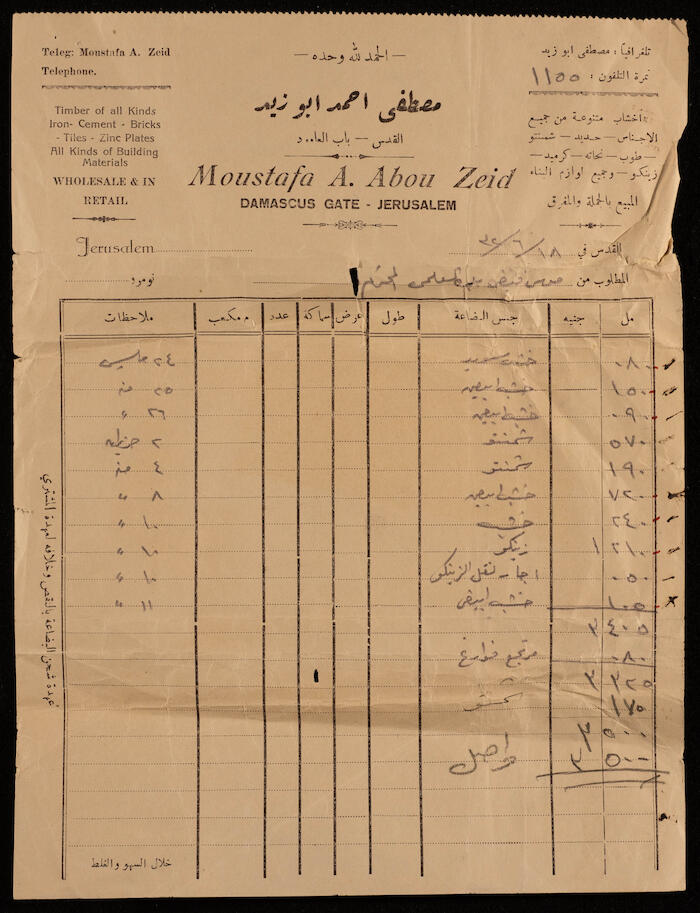 Teleg: Moustafa A. Zeid
Telephone.
Timber of all Kinds
Iron- Cement - Bricks
- Tiles - Zinc Plates
All Kinds of Building
Materials
WHOLESALE & IN
RETAIL
— الحمد لله وحده —
مصطفى احمد ابو زيد
القدس — باب العامود
Moustafa A. Abou Zeid
DAMASCUS GATE - JERUSALEM
تلغرافياً : مصطفى ابو زيد
نمرة التلفون : ١١٥٥
اخشاب متنوعة من جميع
الاجناس — حديد — شمنتو
— طوب — نحاته — كرميد —
زينكو — وجميع لوازم البناء
المبيع بالجملة والمفرق
Jerusalem
القدس في ١٨/٦/٣٢
المطلوب من المحترم
نومرو
مل جنيه جنس البضاعة طول عرض سماكة عدد م مكعب ملاحظات
٠٨٠ خشب ٢٤ مايس
١٥٠ خشب ابيض ٢٥ منه
٠٩٠ خشب ابيض ٢٦ "
٥٧٠ شمنتو ٢ حزيران
١٩٠ شمنتو ٤ منه
٧٢٠ خشب ابيض ٨ "
٢٤٠ خشب ١٠ "
٢١٠ ١ زينكو ١٠ "
٠٥٠ اجار نقل الزينكو ١٠ "
١٠٥ خشب ابيض ١١ "
٤٠٥ ٣
٠٨٠ مرتجع فوارغ
٣٢٥ ٣
١٧٥ شمنتو
٥٠٠ ٣
٥٠٠ ٣ واصل
عهدة شحن البضاعة بالنقص وخلافه لعهدة المشتري
خلال السهو والغلط